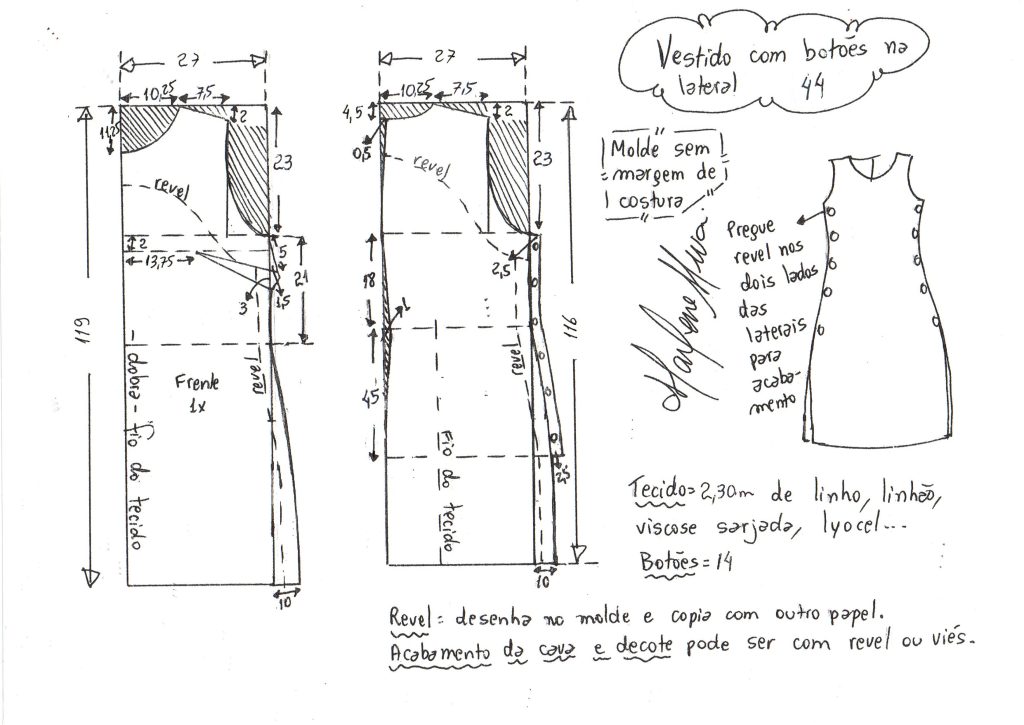 Vestido com botões na
lateral 44
27
10,25 7,5
11,25
2
23
revel
2
13,75
5
1,5
3
21
119
revel
Frente
1x
dobra - fio do tecido
10
27
4,5
10,25 7,5
2
0,5
revel
23
2,5
18
1
revel
45
116
Fio do tecido
2,5
10
Molde sem
margem de
costura
Marlene Mukai
Pregue
revel nos
dois lados
das
laterais
para
acaba-
mento
Tecido = 2,30m de linho, linhão,
viscose sarjada, lyocel...
Botões = 14
Revel = desenha no molde e copia com outro papel.
Acabamento da cava e decote pode ser com revel ou viés.